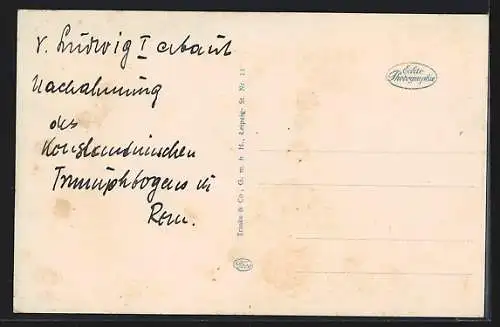 v. Ludwig I erbaut
Nachahmung
des
Konstantinischen
Triumphbogens in
Rom.
Echte
Photographie
Trinks & Co., G. m. b. H., Leipzig- St. Nr. 11